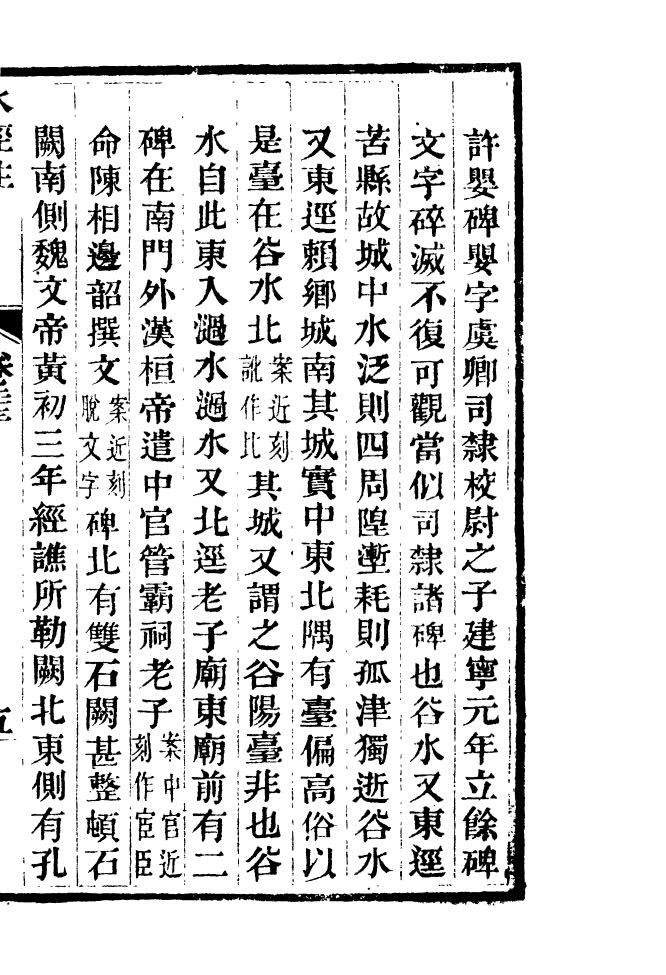 許嬰碑嬰字虞卿司隸校尉之子建寧元年立餘碑
文字碎滅不復可觀當似司隸諸碑也谷水又東逕
苦縣故城中水泛則四周隍壍耗則孤津獨逝谷水
又東逕賴鄉城南其城實中東北隅有臺偏高俗以
是臺在谷水北案近刻訛作比其城又謂之谷陽臺非也谷
水自此東入濄水濄水又北逕老子廟東廟前有二
碑在南門外漢桓帝遣中官管霸祠老子案中官近刻作宦臣
命陳相邊韶撰文案近刻脫文字碑北有雙石闕甚整頓石
闕南側魏文帝黃初三年經譙所勒闕北東側有孔
水經注